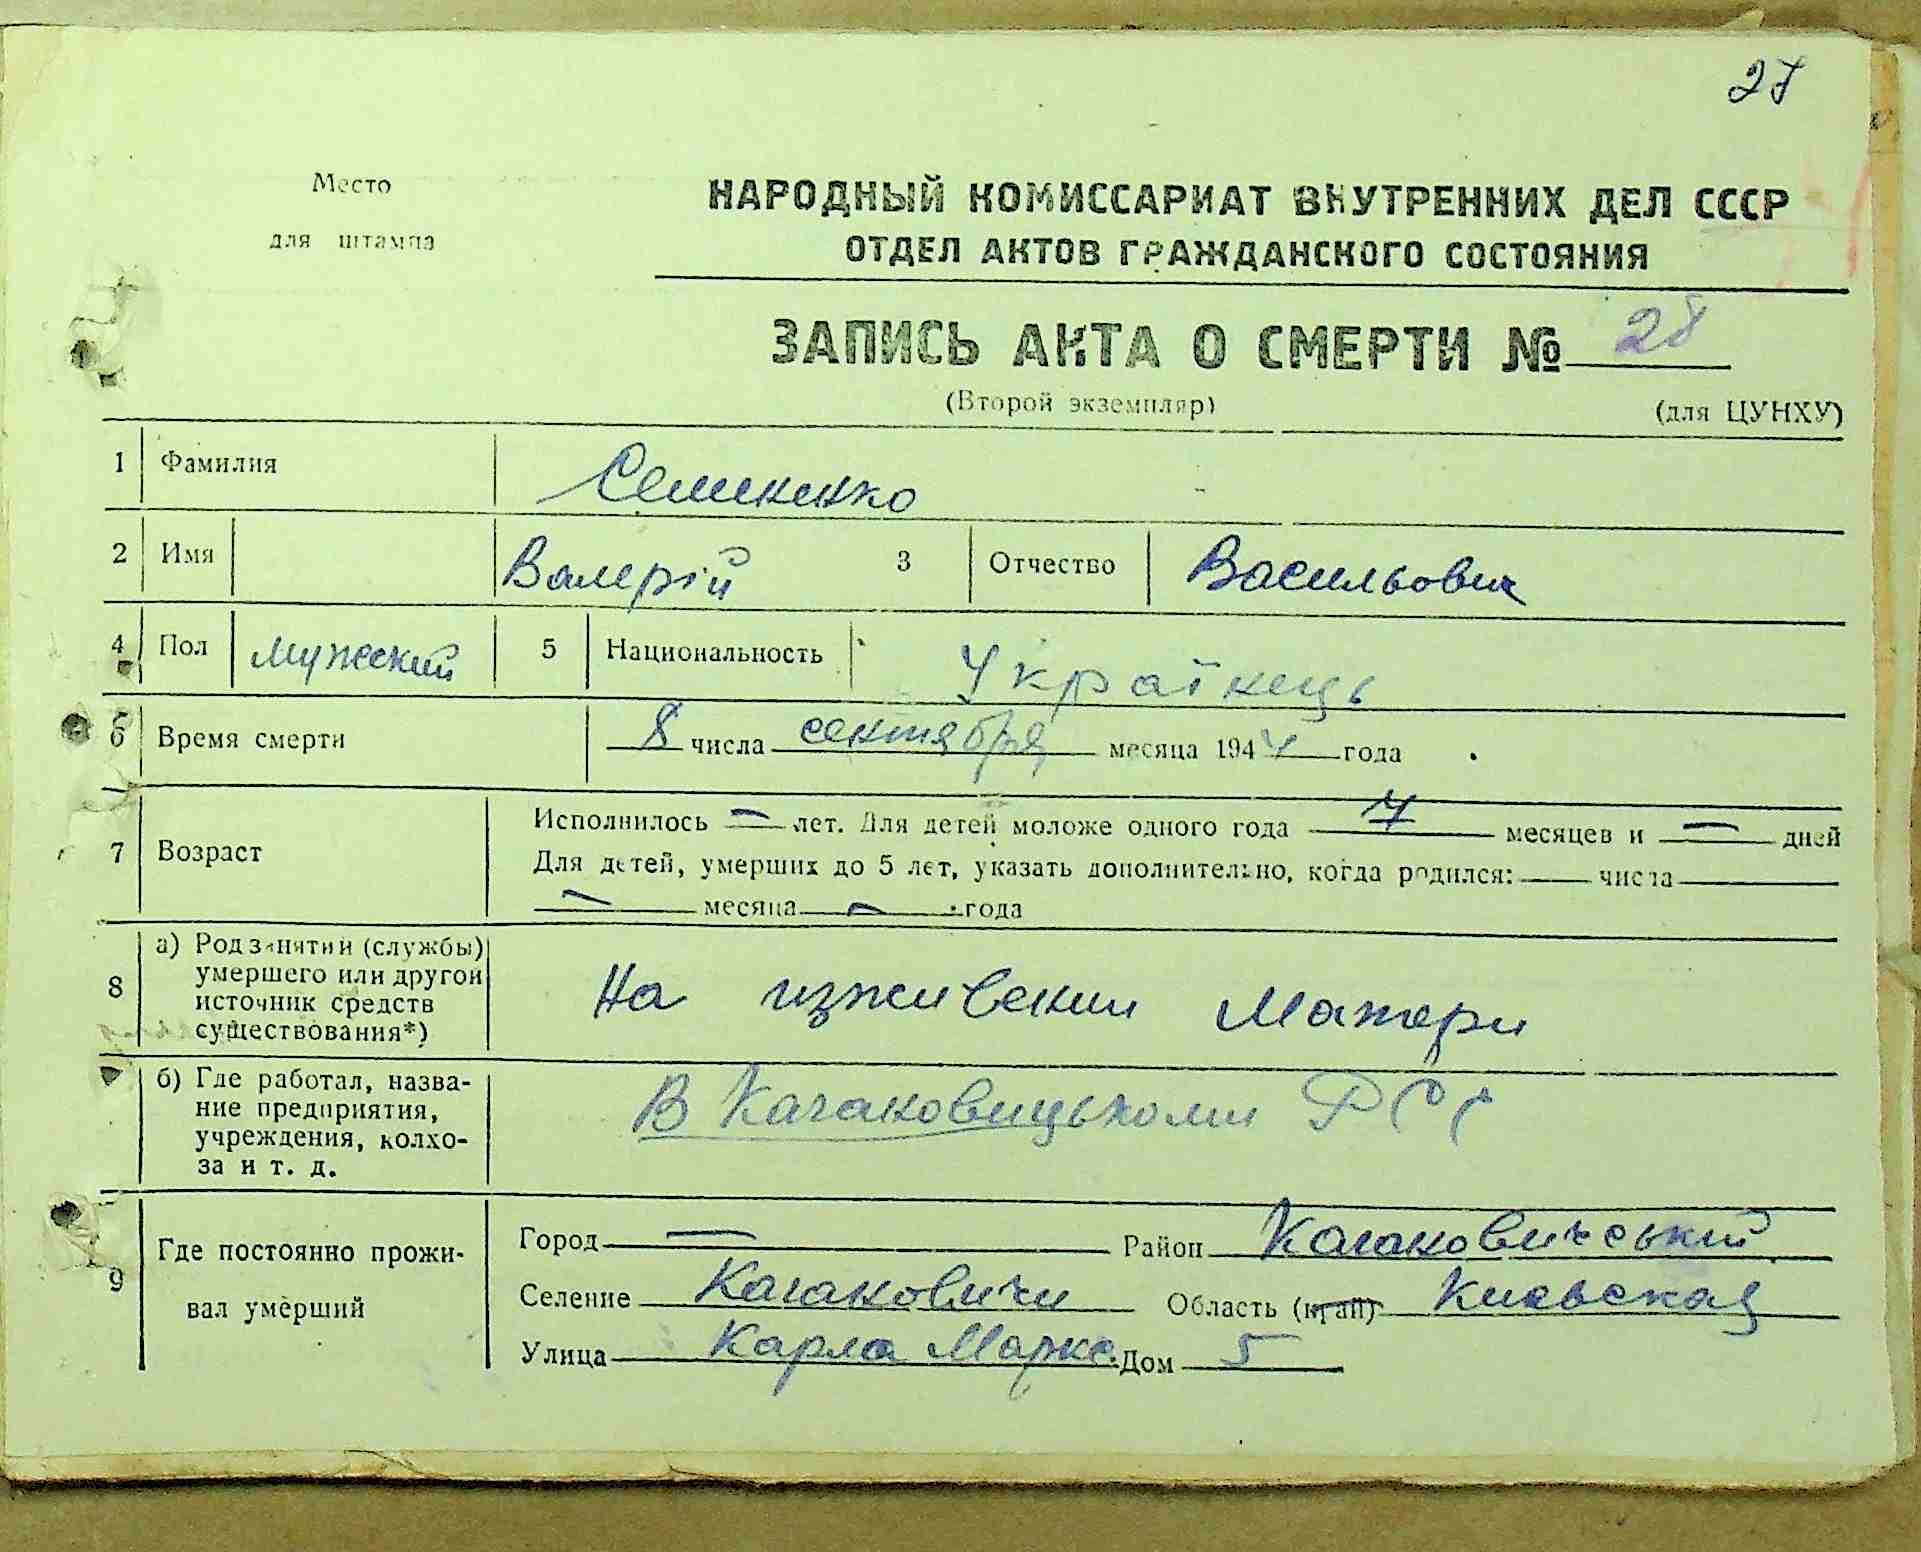 27
Место
для штампа
НАРОДНЫЙ КОМИССАРИАТ ВНУТРЕННИХ ДЕЛ СССР
ОТДЕЛ АКТОВ ГРАЖДАНСКОГО СОСТОЯНИЯ
ЗАПИСЬ АКТА О СМЕРТИ № 28
(Второй экземпляр) (для ЦУНХУ)
1 Фамилия Семененко
2 Имя Валерій 3 Отчество Васильович
4 Пол мужеский 5 Национальность Українець
6 Время смерти 8 числа сентября месяца 1944 года
7 Возраст Исполнилось — лет. Для детей моложе одного года 7 месяцев и — дней
Для детей, умерших до 5 лет, указать дополнительно, когда родился: числа
— месяца — года
8 а) Род занятий (службы) умершего или другой источник средств существования*) На изживении Матери
б) Где работал, название предприятия, учреждения, колхоза и т. д. В Кагановицькоми
9 Где постоянно проживал умерший
Город — Район Кагановичський
Селение Кагановичи Область (край) Киевская
Улица Карла Маркс. Дом 5